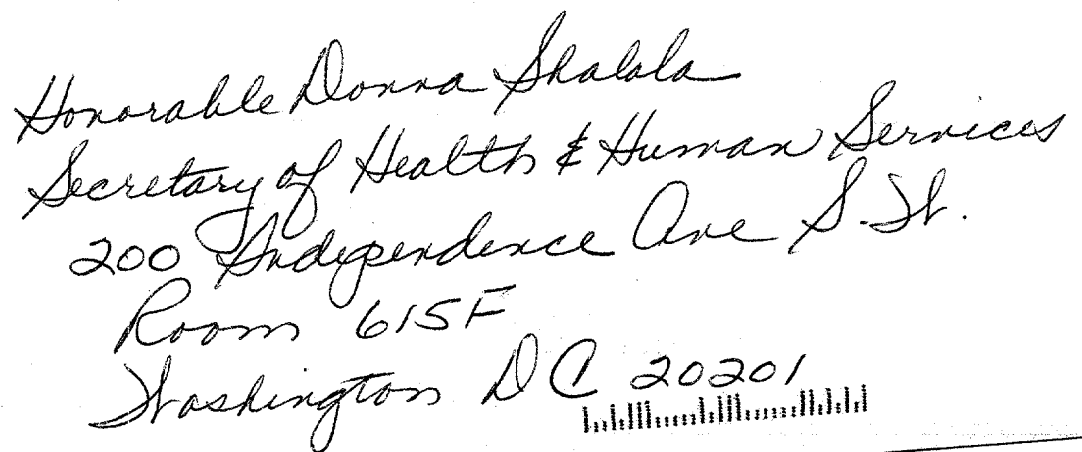 Honorable Donna Shalala
Secretary of Health & Human Services
200 Independence Ave S.W.
Room 615F
Washington DC 20201